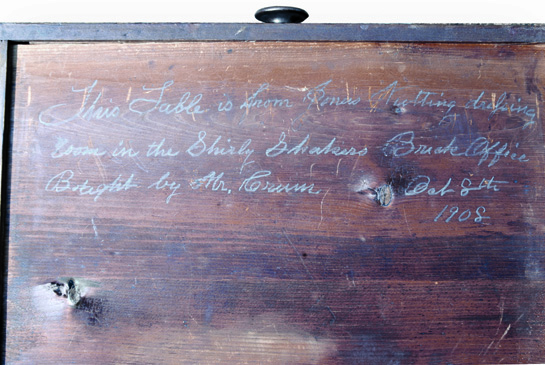 This Table is from Jonas Nutting drawing
room in the Shirly Shakers Brick Office
Bought by Mr. Crum, Oct 8th
1908